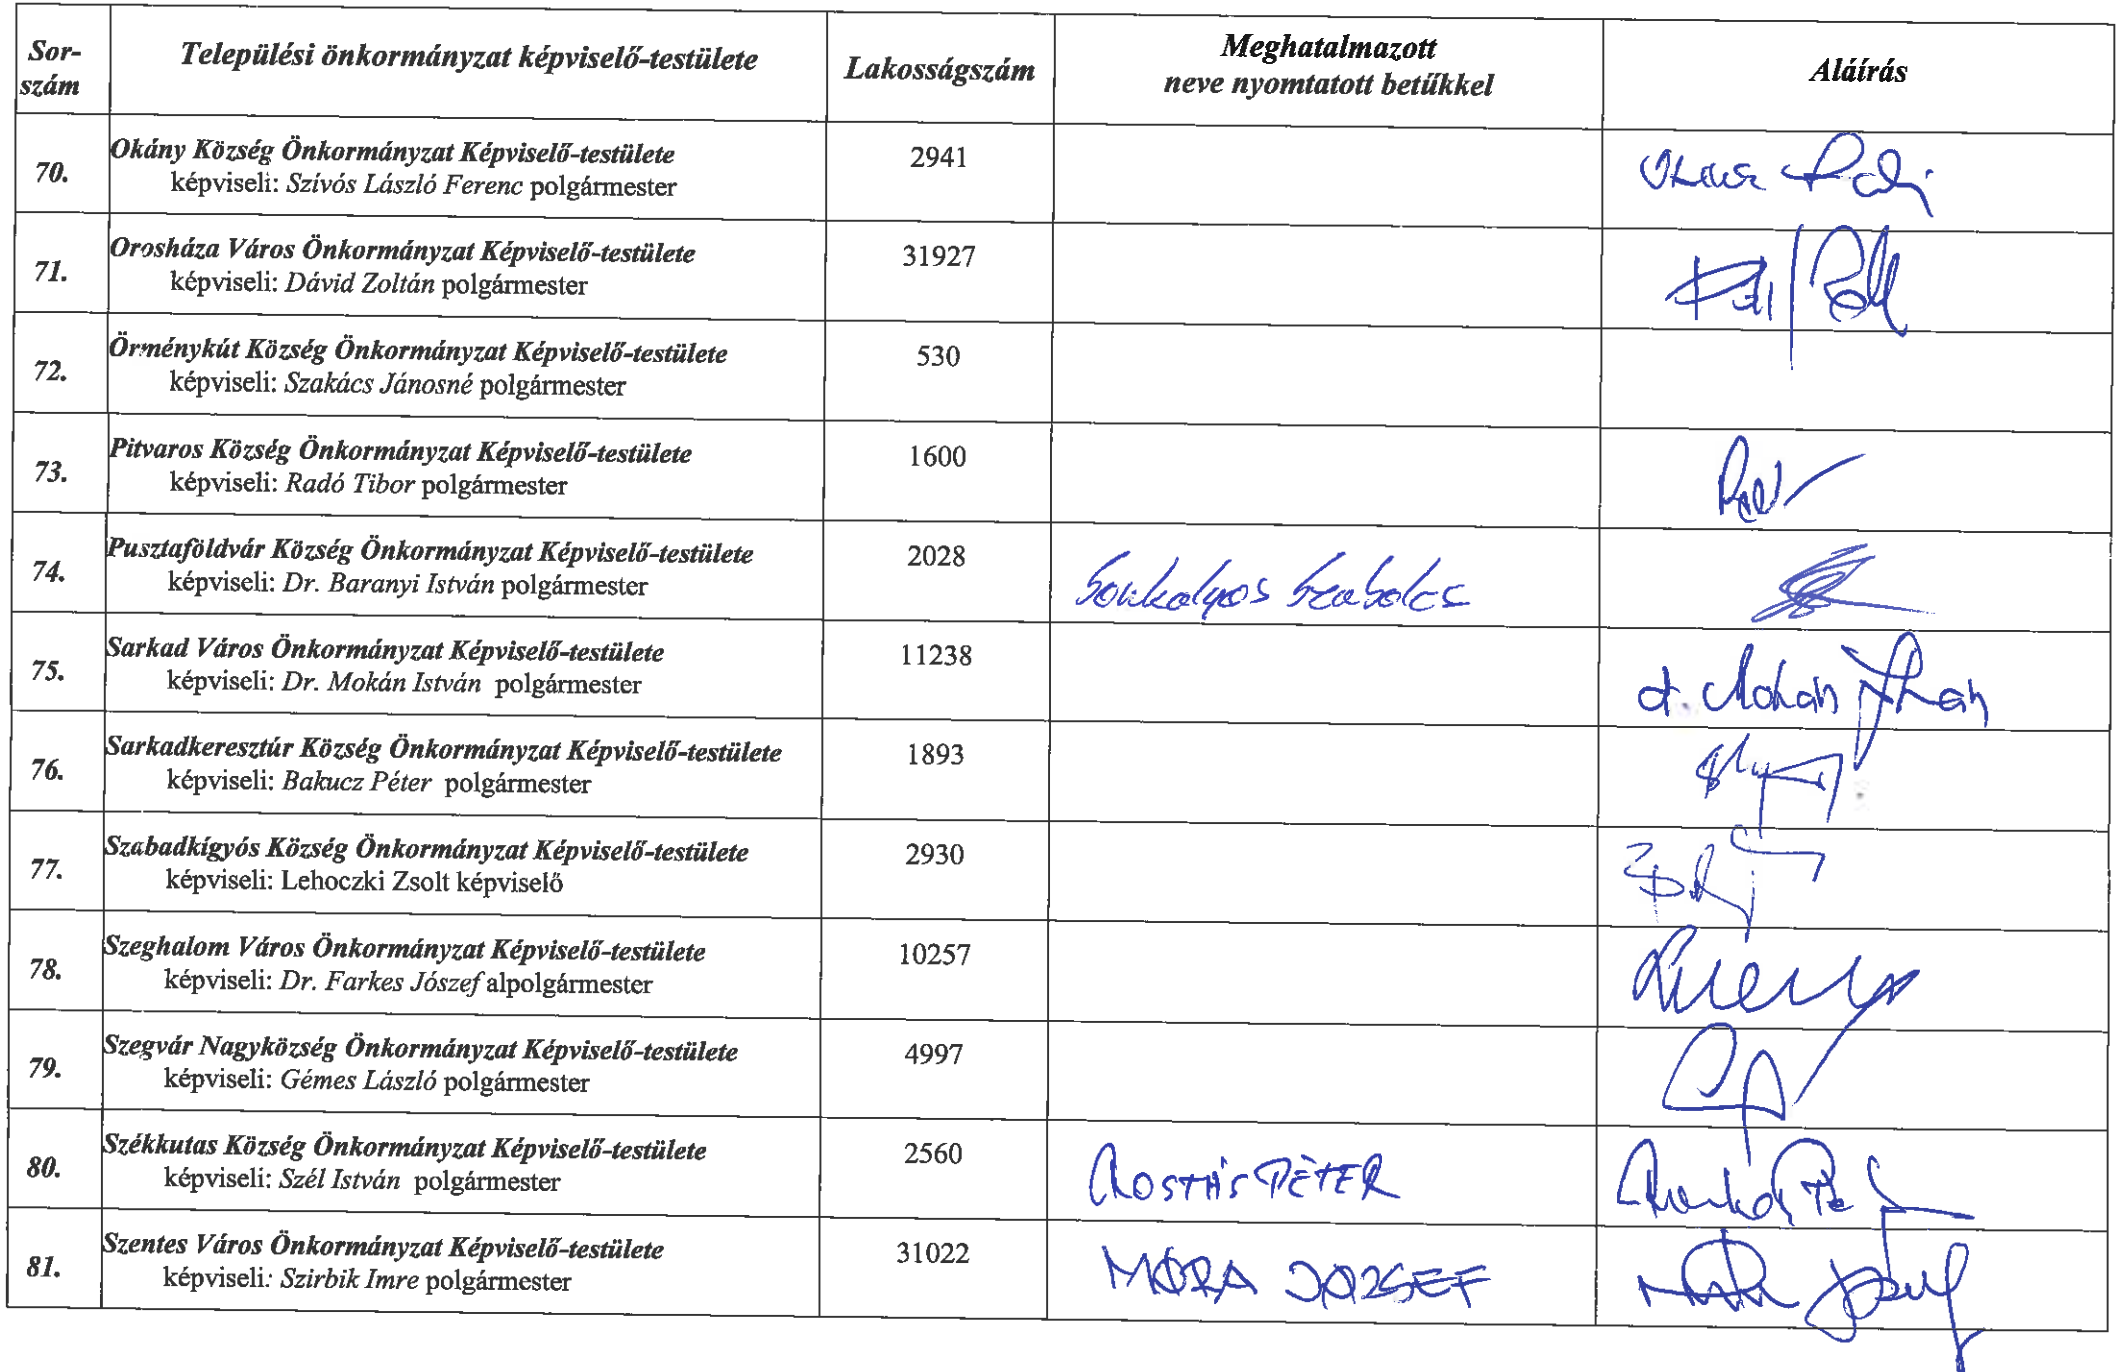 Sor-
szám
Települési önkormányzat képviselő-testülete
Lakosságszám
Meghatalmazott
neve nyomtatott betűkkel
Aláírás
70.
Okány Község Önkormányzat Képviselő-testülete
képviseli: Szívós László Ferenc polgármester
2941
71.
Orosháza Város Önkormányzat Képviselő-testülete
képviseli: Dávid Zoltán polgármester
31927
72.
Örménykút Község Önkormányzat Képviselő-testülete
képviseli: Szakács Jánosné polgármester
530
73.
Pitvaros Község Önkormányzat Képviselő-testülete
képviseli: Radó Tibor polgármester
1600
74.
Pusztaföldvár Község Önkormányzat Képviselő-testülete
képviseli: Dr. Baranyi István polgármester
2028
Szabolcs
75.
Sarkad Város Önkormányzat Képviselő-testülete
képviseli: Dr. Mokán István polgármester
11238
dr. Mokán István
76.
Sarkadkeresztúr Község Önkormányzat Képviselő-testülete
képviseli: Bakucz Péter polgármester
1893
77.
Szabadkígyós Község Önkormányzat Képviselő-testülete
képviseli: Lehoczki Zsolt képviselő
2930
78.
Szeghalom Város Önkormányzat Képviselő-testülete
képviseli: Dr. Farkes Jószef alpolgármester
10257
79.
Szegvár Nagyközség Önkormányzat Képviselő-testülete
képviseli: Gémes László polgármester
4997
80.
Székkutas Község Önkormányzat Képviselő-testülete
képviseli: Szél István polgármester
2560
ROSTÁS PÉTER
81.
Szentes Város Önkormányzat Képviselő-testülete
képviseli: Szirbik Imre polgármester
31022
MÓRA JÓZSEF